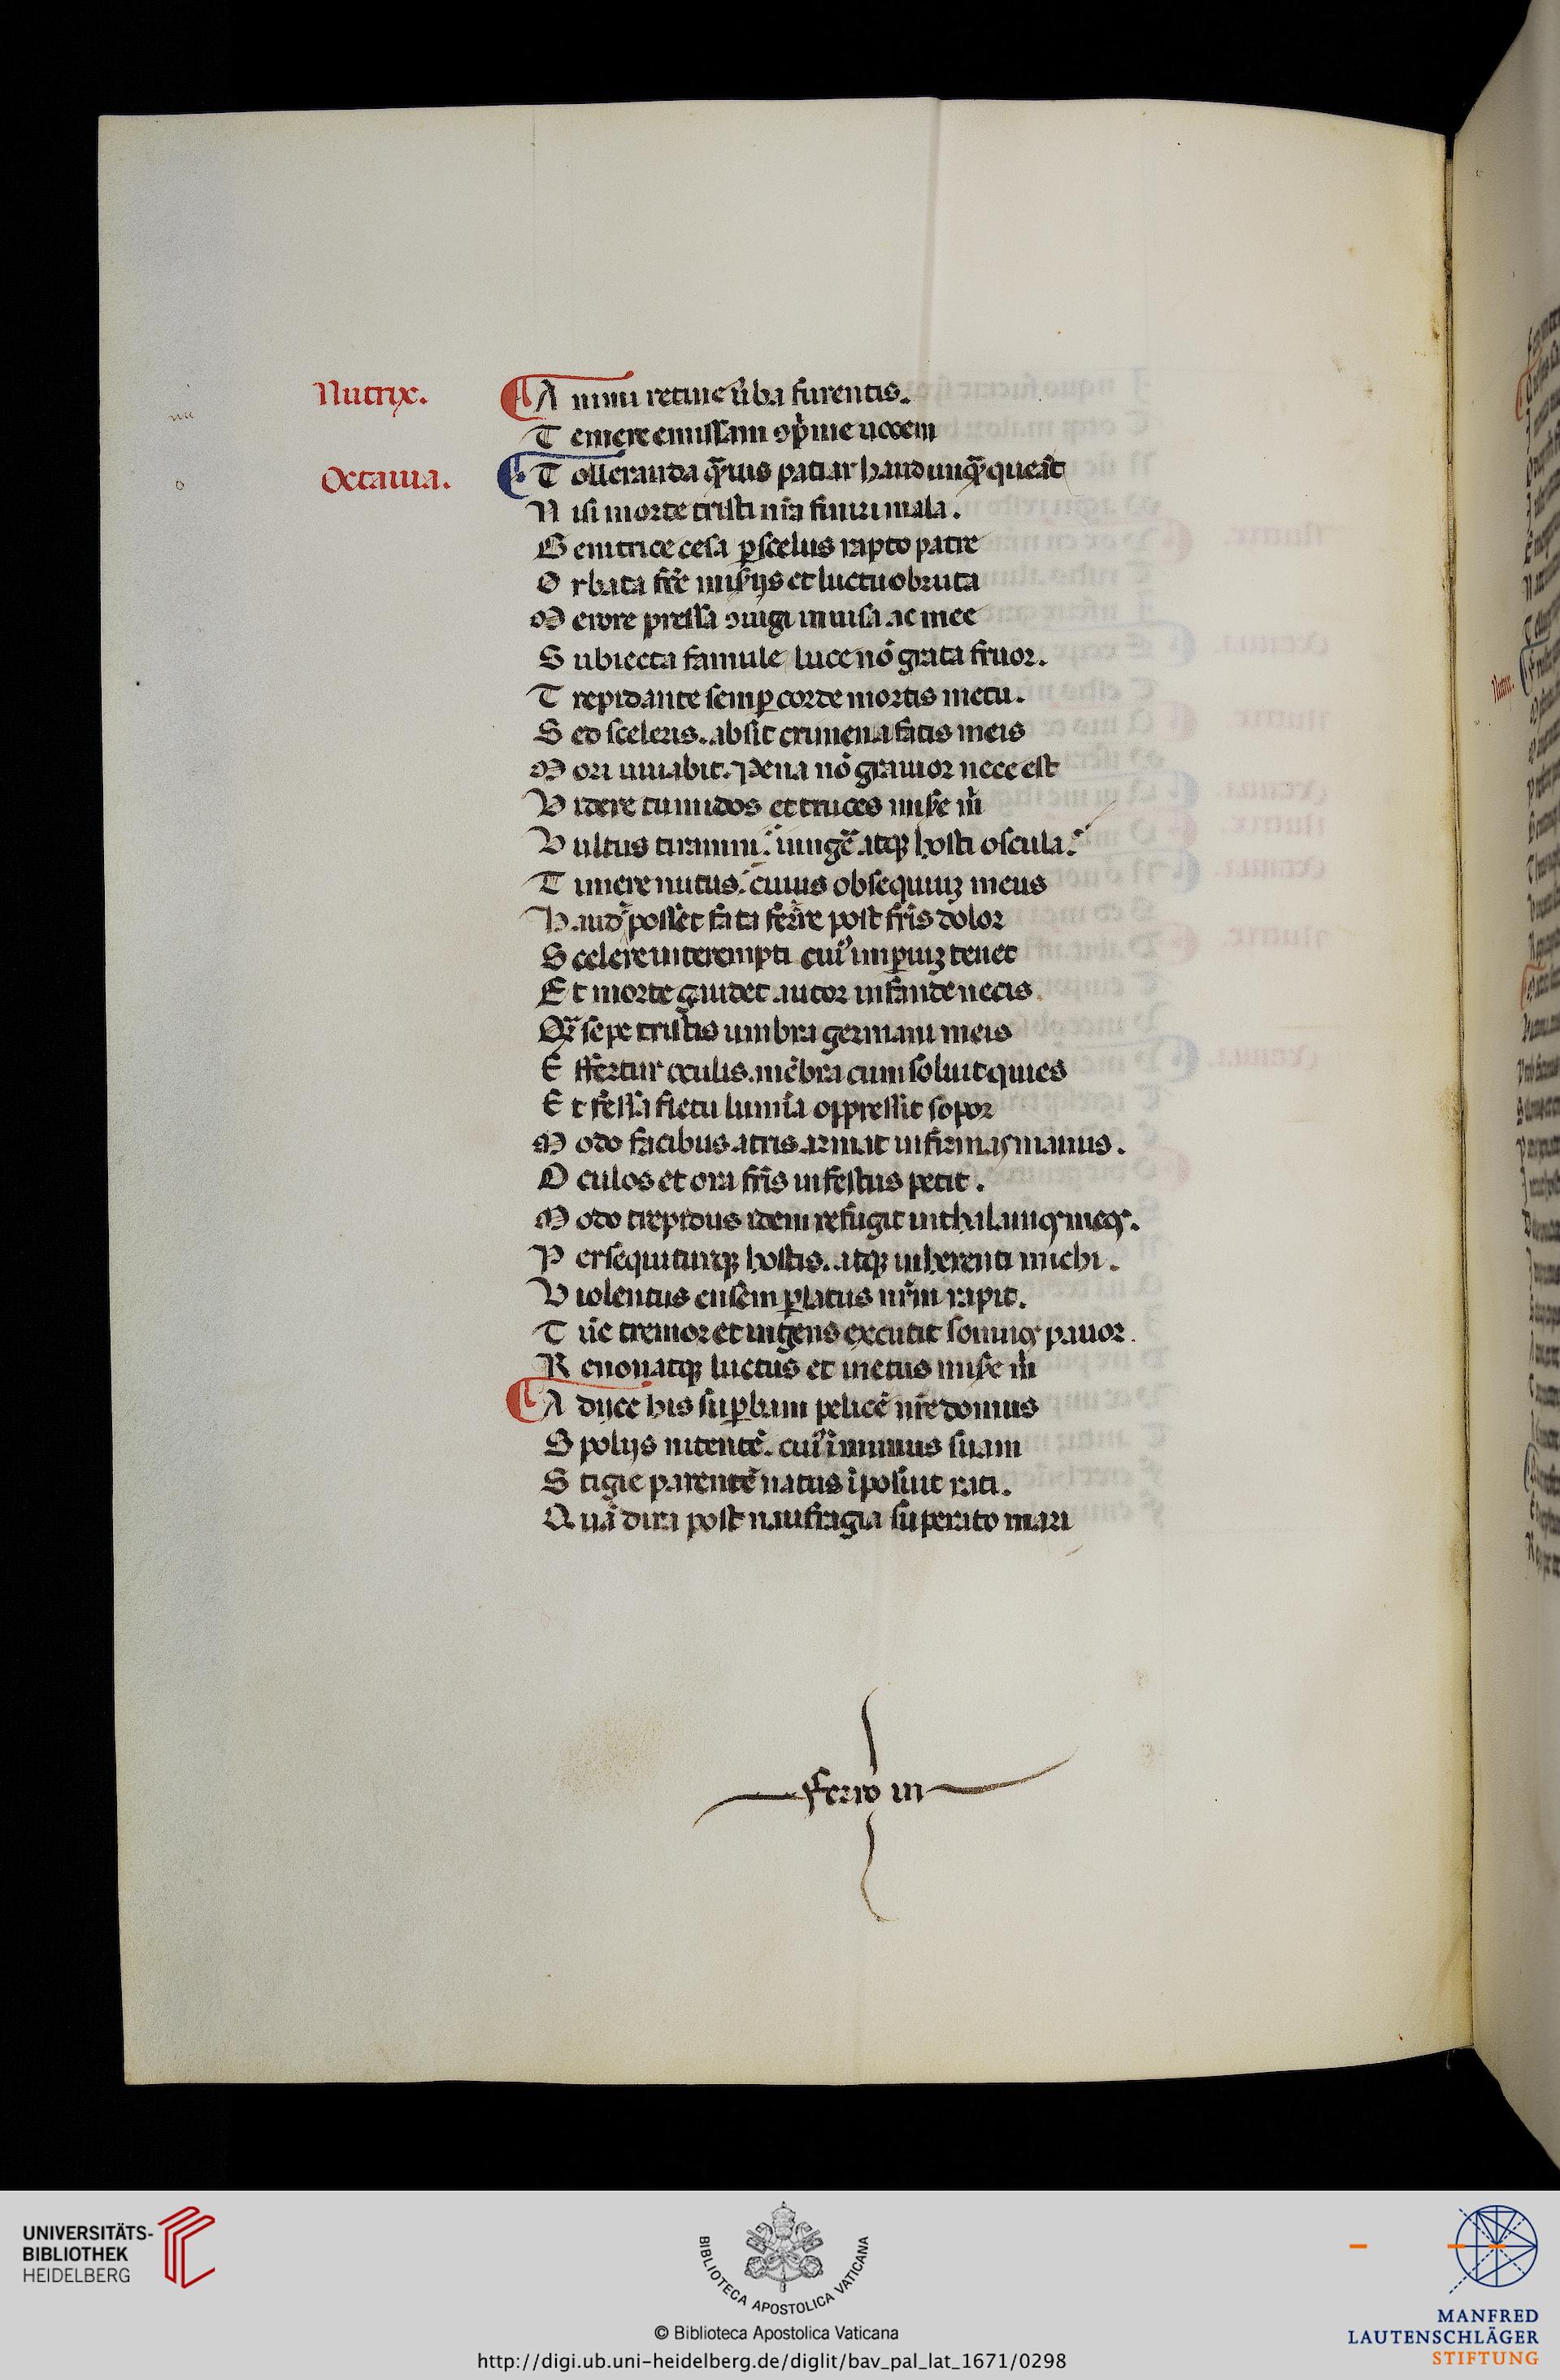 Nutrix. Animi retine ũba furentis.
Temere emissam ↄp̃me uocem
Octauia. Tolleranda q̃uis patiar haud unq̃ queãt
Nisi morte tristi nr̃a finiri mala.
Genitrice cesa ꝑ scelus rapto patre
Orbata fr̃e mis̃ijs et luctu obruta
Merore pressa ↄiugi inuisa ac mee
Subiecta famule luce nõ grata fruor.
Trepidante semꝑ corde mortis metu.
Sed sceleris. absit crimen a fatis meis
Mori iuuabit. Pena nõ grauior nece est
Videre tumidos et truces mis̃e m̃
Vultus tiranni. iungẽ atqꝫ hosti oscula.
Timere nutus. cuius obsequiuꝫ meus
Haud posset fata ferre post fr̃is dolor
Scelere interempti cuiꝰ imꝑiuꝫ tenet
Et morte gaudet autor infande necis.
Q̃ sepe tristis umbra germani meis
Effertur oculis. mẽbra cum soluit quies
Et fessa fletu lumĩa oppressit sopor
Modo facibus atris armat infirmas manus.
Oculos et ora fr̃is infestus petit.
Modo trepidus idem refugit in thalamꝰ meꝰ.
Persequiturqꝫ hostis. atqꝫ inherenti michi.
Violentus ensem ꝑ latus nr̃m rapit.
Tũc tremor et ingens excutit somnos pauor.
Renouatqꝫ luctus et metus mis̃e m̃
Adijce his suꝑbam pelicẽ nr̃e domus
Spolijs nitentẽ. cuiꝰ ĩ munus suam
Stigie parentẽ natus ĩposuit rati.
Quã dira post naufragia superato mari
ferro in
UNIVERSITÄTS-
BIBLIOTHEK
HEIDELBERG
BIBLIOTECA APOSTOLICA VATICANA
© Biblioteca Apostolica Vaticana
http://digi.ub.uni-heidelberg.de/diglit/bav_pal_lat_1671/0298
MANFRED
LAUTENSCHLÄGER
STIFTUNG